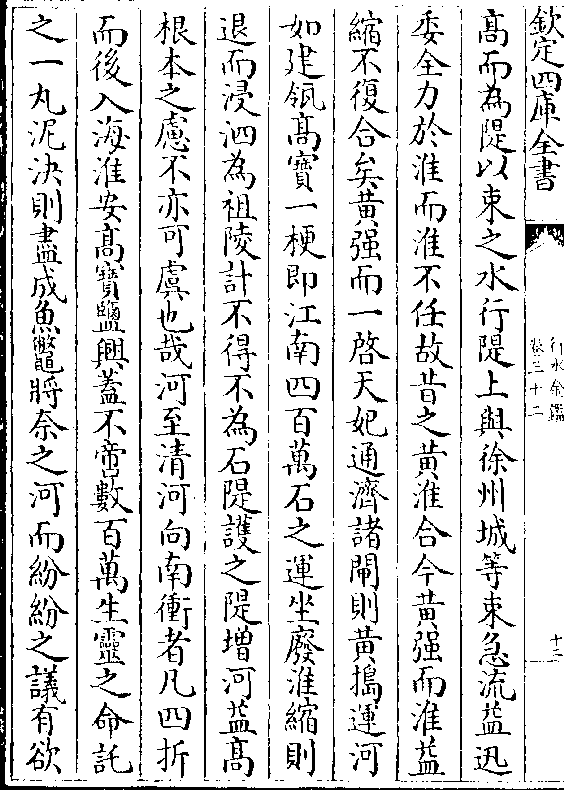 欽定四庫全書
行水金鑑
卷三十二
十二
高而為隄以束之水行隄上與徐州城等束急流益迅
委全力於淮而淮不任故昔之黄淮合今黄强而淮益
縮不復合矣黄强而一啓天妃通濟諸閘則黄搗運河
如建瓴高寶一梗即江南四百萬石之運坐廢淮縮則
退而浸泗為祖陵計不得不為石隄護之隄増河益高
根本之慮不亦可虞也哉河至清河向南衝者凡四折
而後入海淮安高寶鹽興蓋不啻數百萬生靈之命託
之一丸泥決則盡成魚鼈將奈之河而紛紛之議有欲